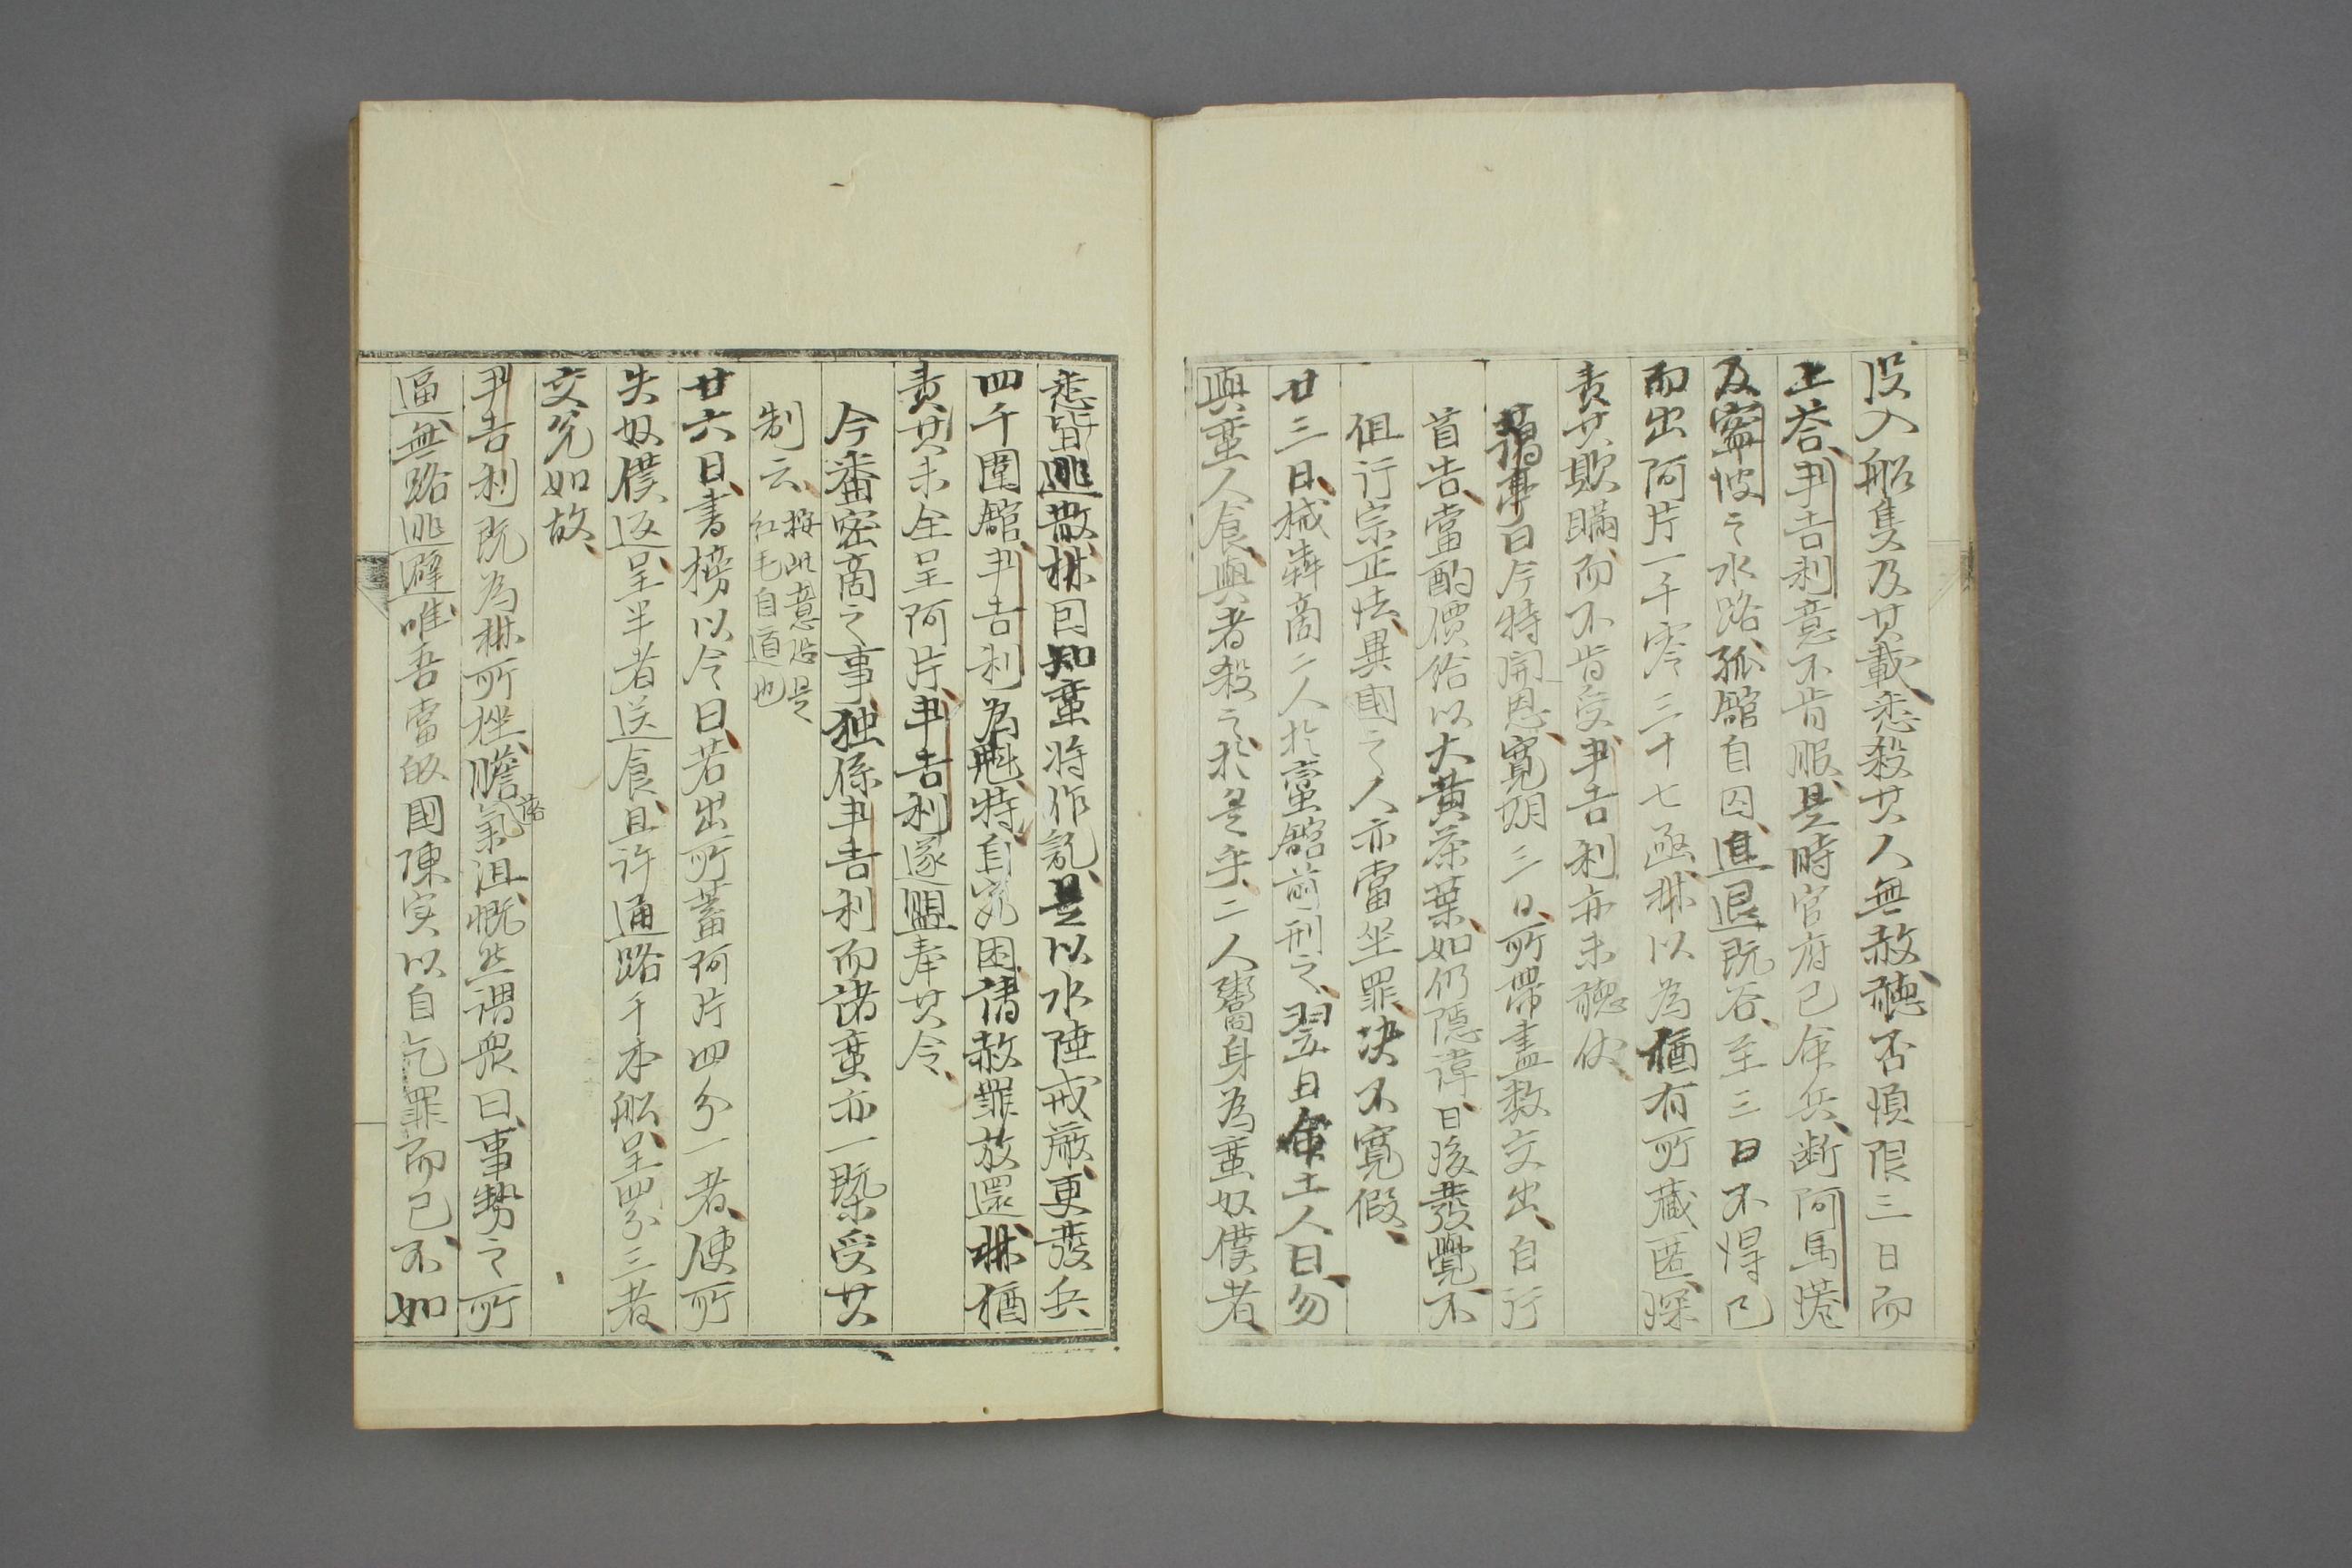 没入船隻及其載悉殺其人無赦聴否慎限三日而
止答尹吉利意不肯服是時官府已命兵断阿馬港
及寧波之水路孤館自囚進退既谷至三日不得已
而出阿片一千零三十七函林以為猶有所蔵匿深
責其欺瞞而不肯受尹吉利亦未聴伏
謁事曰今特開恩寛期三日所帯盡数交出自行
首告當酌價給以大黄茶葉如仍隠諱日後發覺不
但行宗正法異國之人亦當坐罪決不寛假
廿三日械犇商二人於蛮館前刑之翌日命土人曰勿
與蛮人食與者殺之於是乎二人鬻身為蛮奴僕者
悉皆逃散林因知蛮将作乱是以水陸戒厳更發兵
四千圍館尹吉利為魁特自窮困請赦罪放還林猶
責其未全呈阿片尹吉利遂盟奉其令
今番密商之事独係尹吉利而諸蛮亦一槩受其
制云 按此意恐是
紅毛自道也
廿六日書榜以令曰若出所蓄阿片四分一者使所
失奴僕返呈半者送食且許通路千本船呈四分三者
交兌如故
尹吉利既為林所挫膽落氣沮慨然謂衆曰事勢之所
逼無路逃避唯吾當皈国陳実以自乞罪而已不如